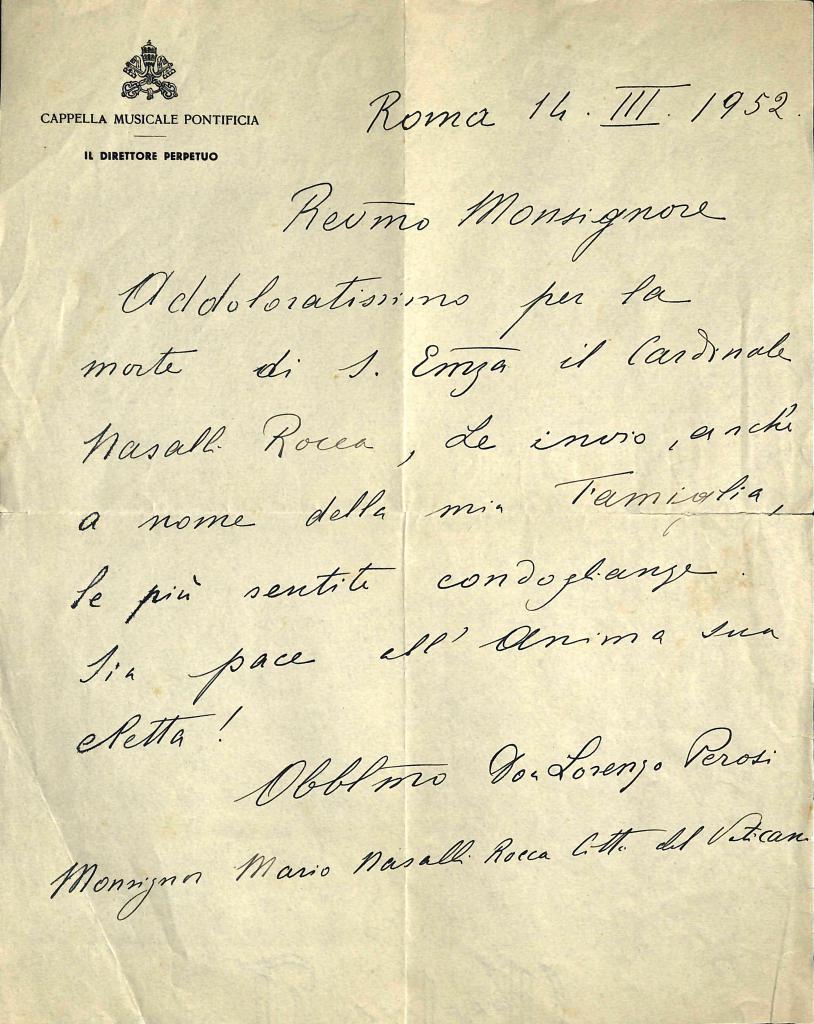 CAPPELLA MUSICALE PONTIFICIA
IL DIRETTORE PERPETUO
Roma 14. III. 1952.
Rev̄mo Monsignore
Addoloratissimo per la
morte di S. Em̄za il Cardinale
Nasalli Rocca, Le invio, anche
a nome della mia Famiglia,
le più sentite condoglianze.
Sia pace all' Anima sua
eletta!
Obbl̄mo Don Lorenzo Perosi
Monsignor Mario Nasalli Rocca Città del Vaticano